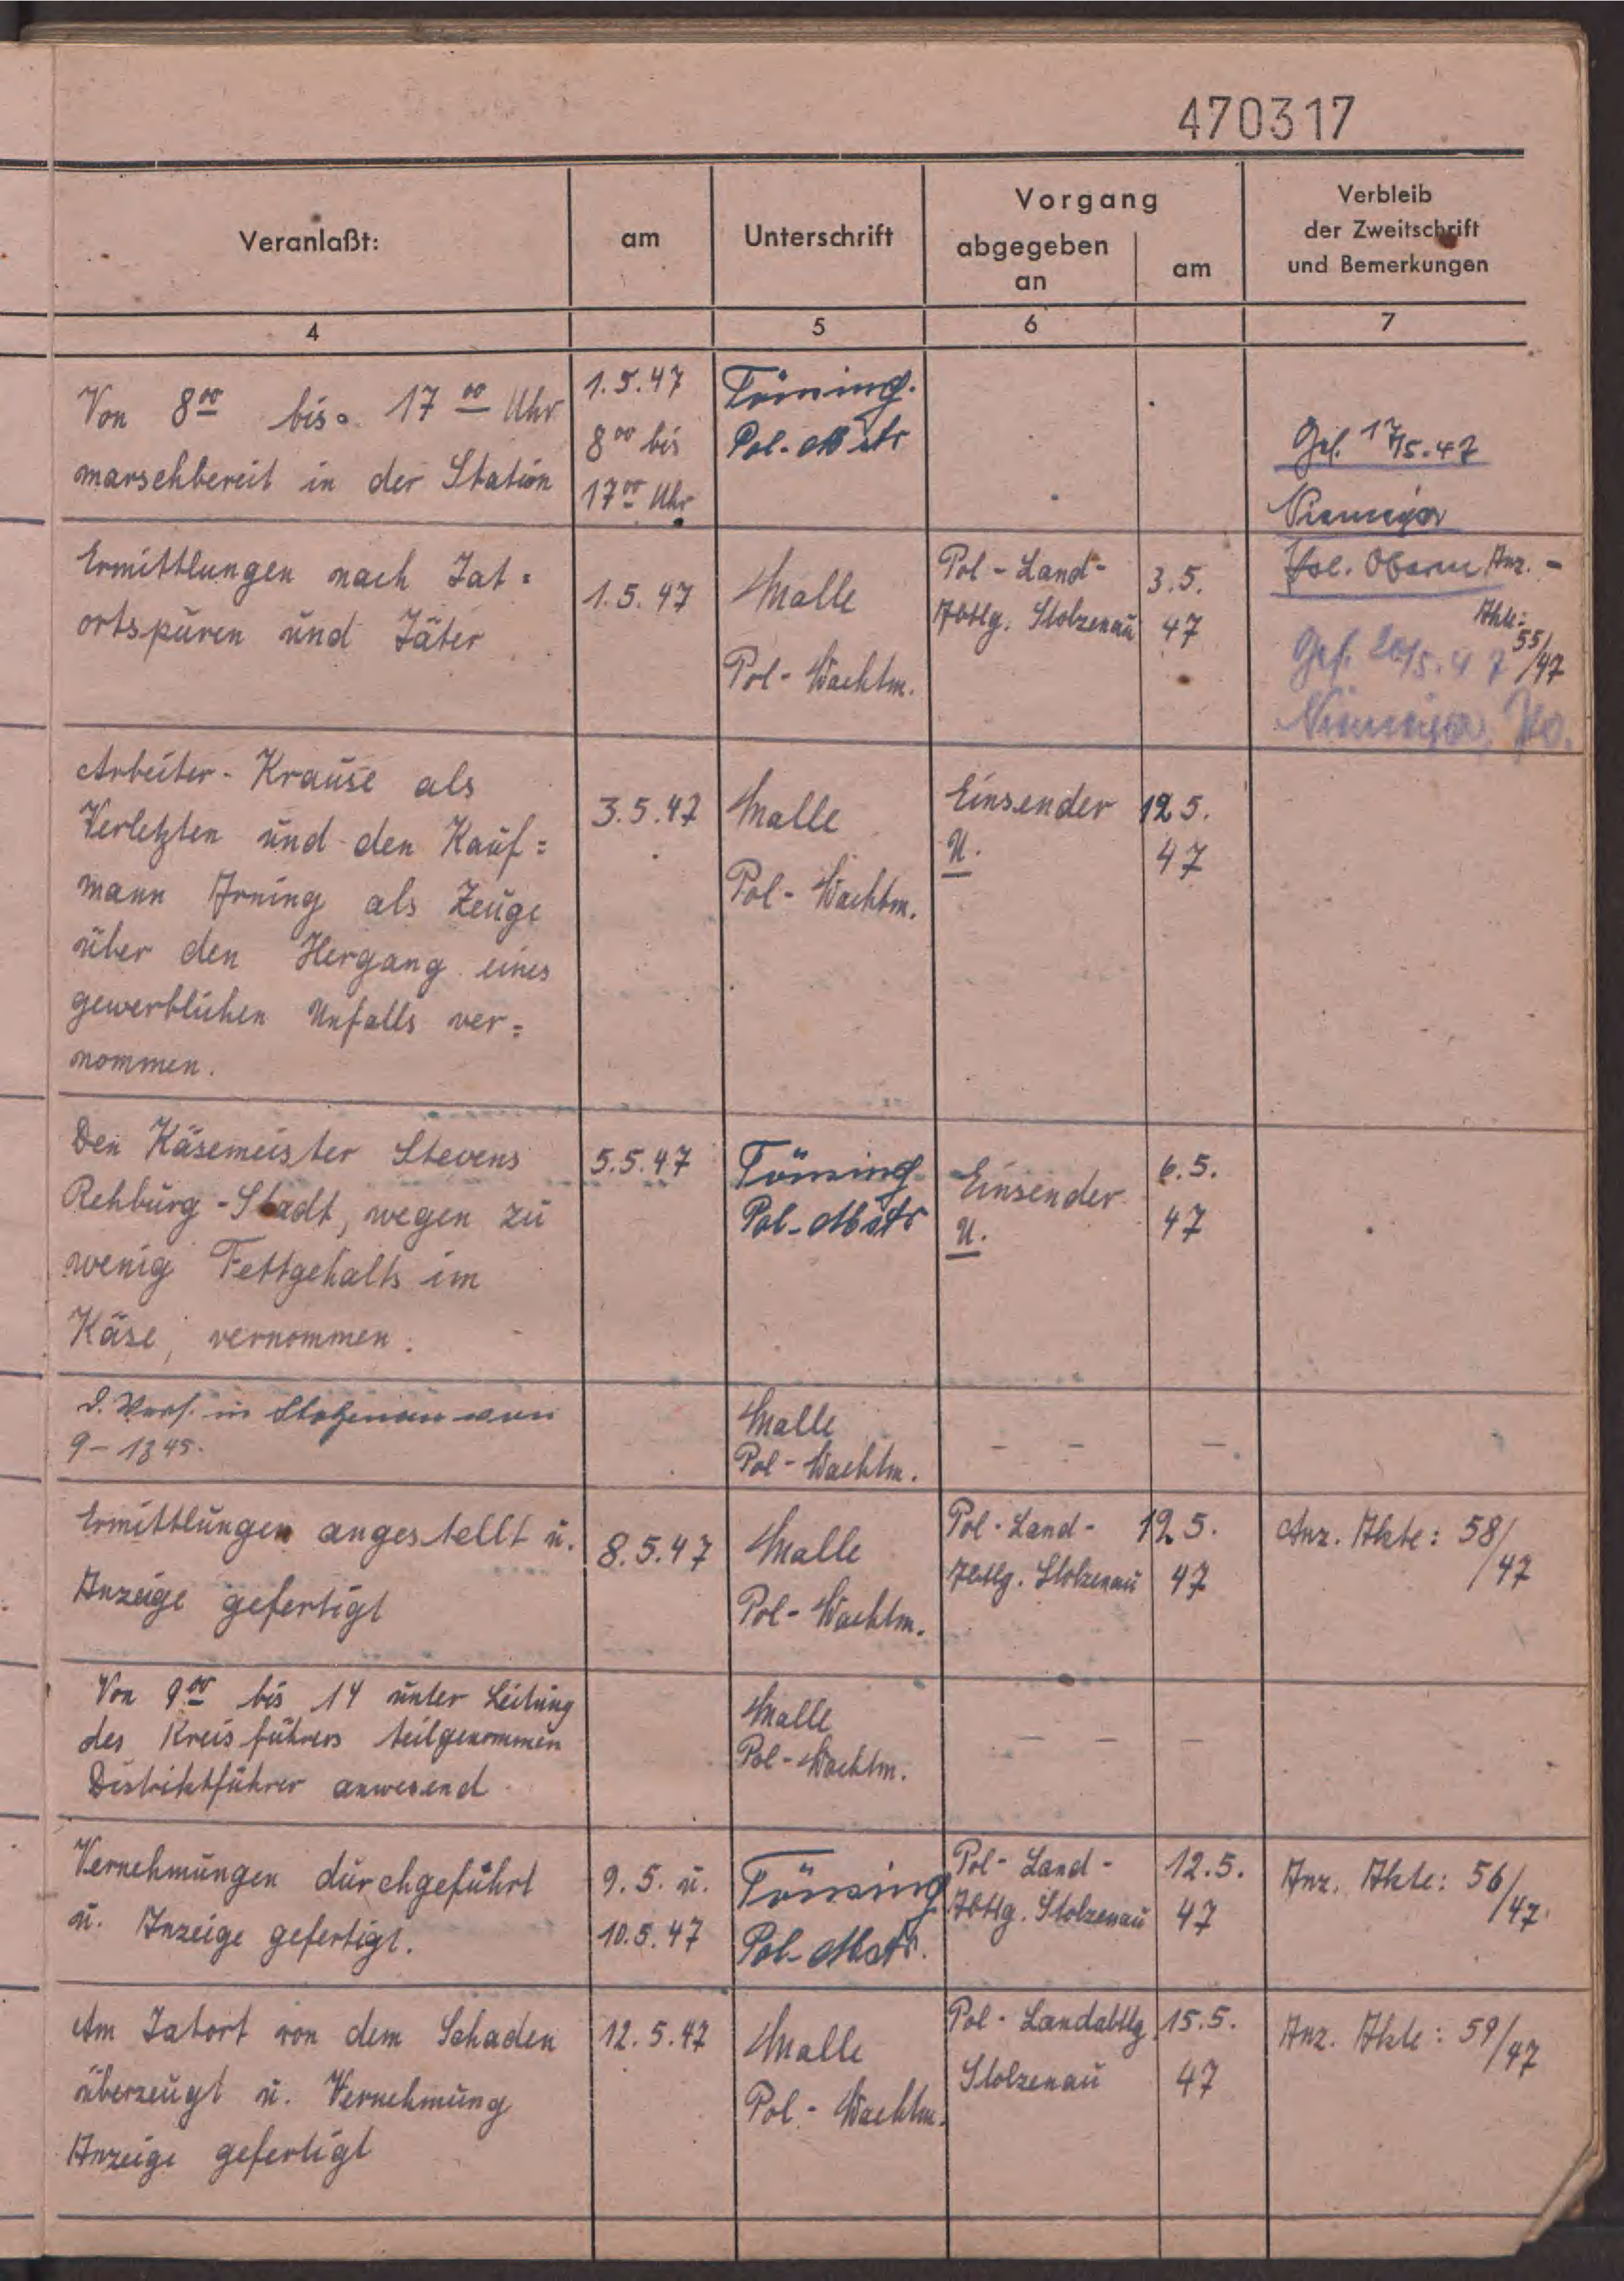 470317
Veranlaßt:
am
Unterschrift
Vorgang
abgegeben
an
am
Verbleib
der Zweitschrift
und Bemerkungen
4
5
6
7
Von 8 00 bis 17 00 Uhr
marschbereit in der Station
1.5.47
8 00 bis
17 00 Uhr
Töning.
Pol.-Mstr
Ges. 17/5.47
Niemeyer
Pol. Oberm.
Ermittlungen nach Tat=
ortspuren und Täter
1.5.47
Malle
Pol-Wachtm.
Pol-Land-
Abtlg. Stolzenau
3.5.
47
Anz.-
Akte:
55/47
Ges. 20/5.47
Niemeyer
Arbeiter-Krause als
Verletzten und den Kauf=
mann Arning als Zeuge
über den Hergang eines
gewerblichen Unfalls ver=
nommen.
3.5.47
Malle
Pol-Wachtm.
Einsender
U.
12 5.
47
Den Käsemeister Stevens
Rehburg-Stadt, wegen zu
wenig Fettgehalts im
Käse, vernommen.
5.5.47
Töning
Pol-Mstr
Einsender
U.
6.5.
47
in Stolzenau von
9-13 45.
Malle
Pol-Wachtm.
- - -
Ermittlungen angestellt u.
Anzeige gefertigt
8.5.47
Malle
Pol-Wachtm.
Pol-Land-
Abtlg. Stolzenau
12 5.
47
Anz. Akte: 58/
47
Von 9 00 bis 14 unter Leitung
des Kreisführers teilgenommen
Distriktführer anwesend
Malle
Pol-Wachtm.
- - -
Vernehmungen durchgeführt
u. Anzeige gefertigt.
9.5. u.
10.5.47
Töning
Pol-Mstr.
Pol-Land-
Abtlg. Stolzenau
12.5.
47
Anz. Akte: 56/
47.
Am Tatort von dem Schaden
überzeugt u. Vernehmung
Anzeige gefertigt
12.5.47
Malle
Pol-Wachtm.
Pol-Landabtlg
Stolzenau
15.5.
47
Anz. Akte: 59/
47